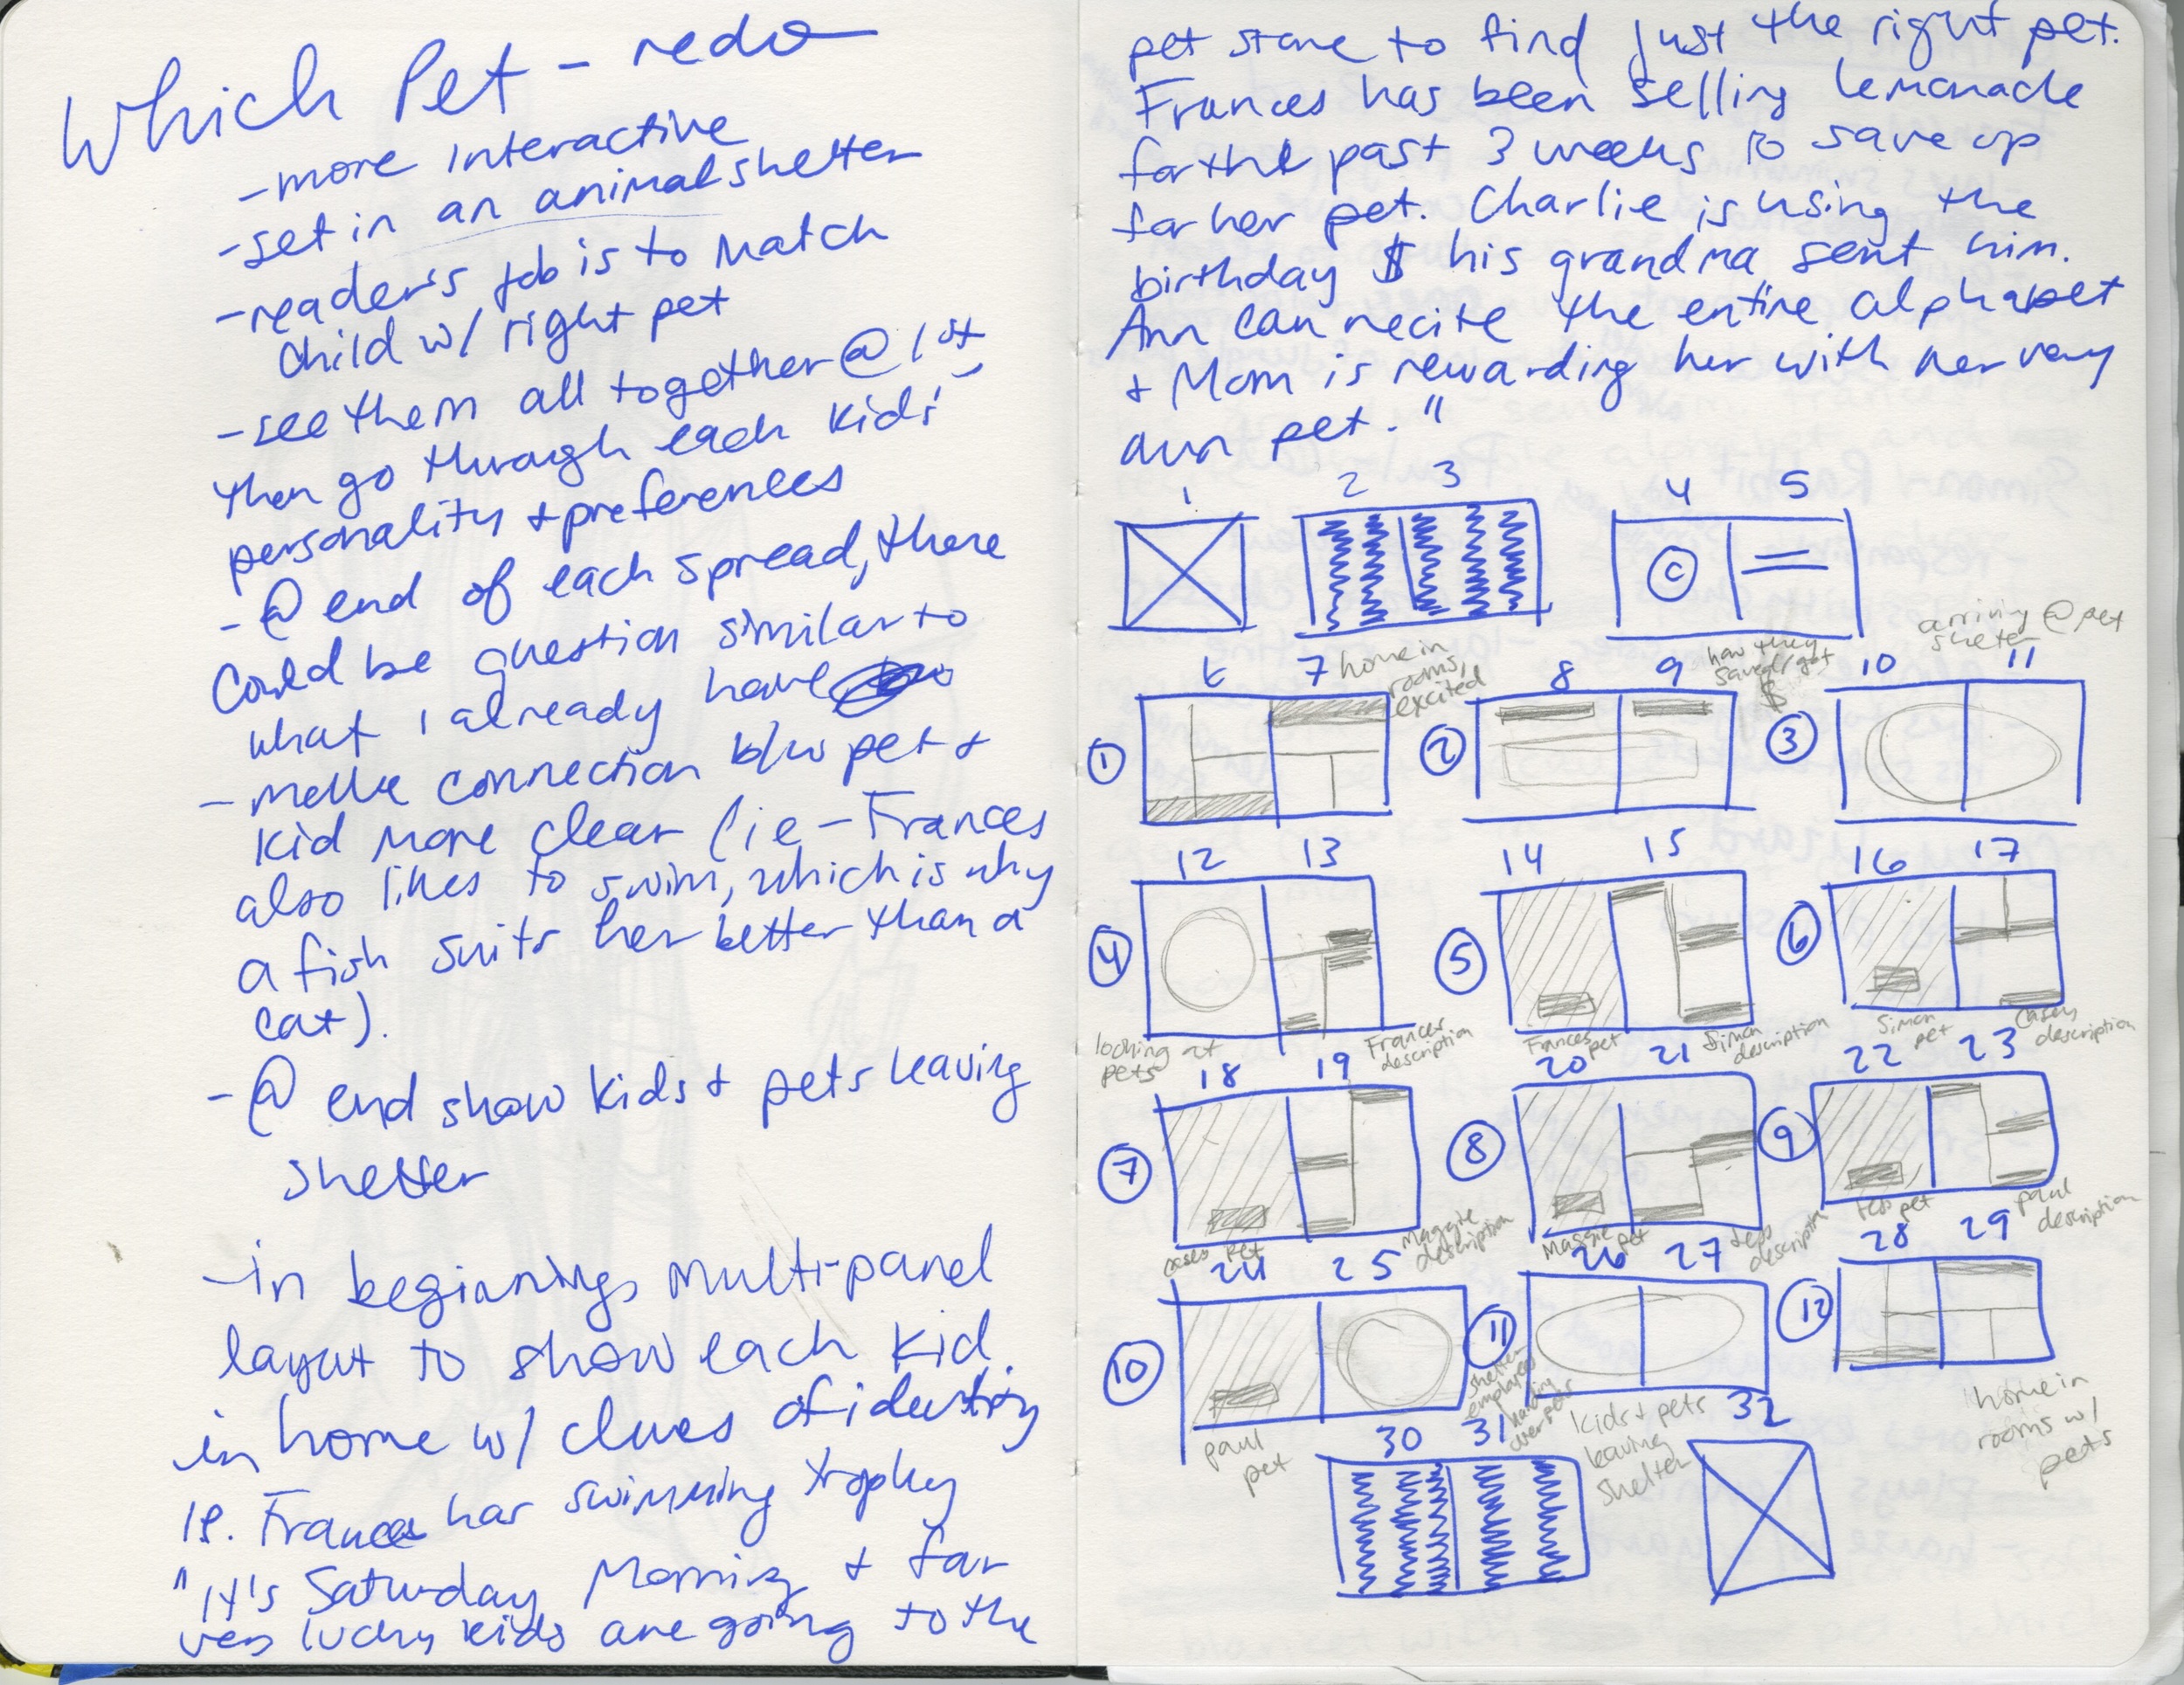 Which Pet - redo
-more interactive
-set in an animal shelter
-reader's job is to match
child w/ right pet
-see them all together @ 1st
then go through each kids'
personality + preferences
-@ end of each spread, there
could be question similar to
what I already have
-make connection b/w pet +
kid more clear (ie - Frances
also likes to swim, which is why
a fish suits her better than a
cat).
-@ end show kids + pets leaving
shelter
-in beginning, multi-panel
layout to show each kid
in home w/ clues of identity
ie. Frances has swimming trophy
"It's Saturday Morning + four
very lucky kids are going to the
pet store to find just the right pet.
Frances has been selling lemonade
for the past 3 weeks to save up
for her pet. Charlie is using the
birthday $ his grandma sent him.
Ann can recite the entire alphabet
+ Mom is rewarding her with her very
own pet."
1 2 3 4 5
©
6 7 home in
rooms,
excited
8 9 how they
saved/got
$
arriving @ pet
shelter
10 11
① ② ③
12 13 14 15 16 17
④ ⑤ ⑥
looking at
pets
Frances
description
Frances pet
Simon
description
Simon
pet
Casey
description
18 19 20 21 22 23
⑦ ⑧ ⑨
Casey pet
Maggie
description
Maggie pet
Tess
description
Tess pet
Paul
description
24 25 26 27 28 29
⑩ ⑪ ⑫
paul
pet
shelter
employees
handing
over pets
kids + pets
leaving
shelter
home in
rooms w/
pets
30 31 32